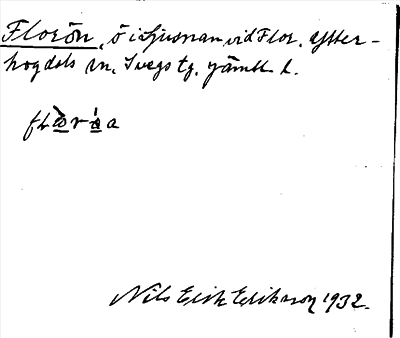 Florön, ö i Ljusnan vid Flor, Ytter-
hogdals sn, Svegs tg, Jämtl. l.
Nils Erik Eriksson 1932.